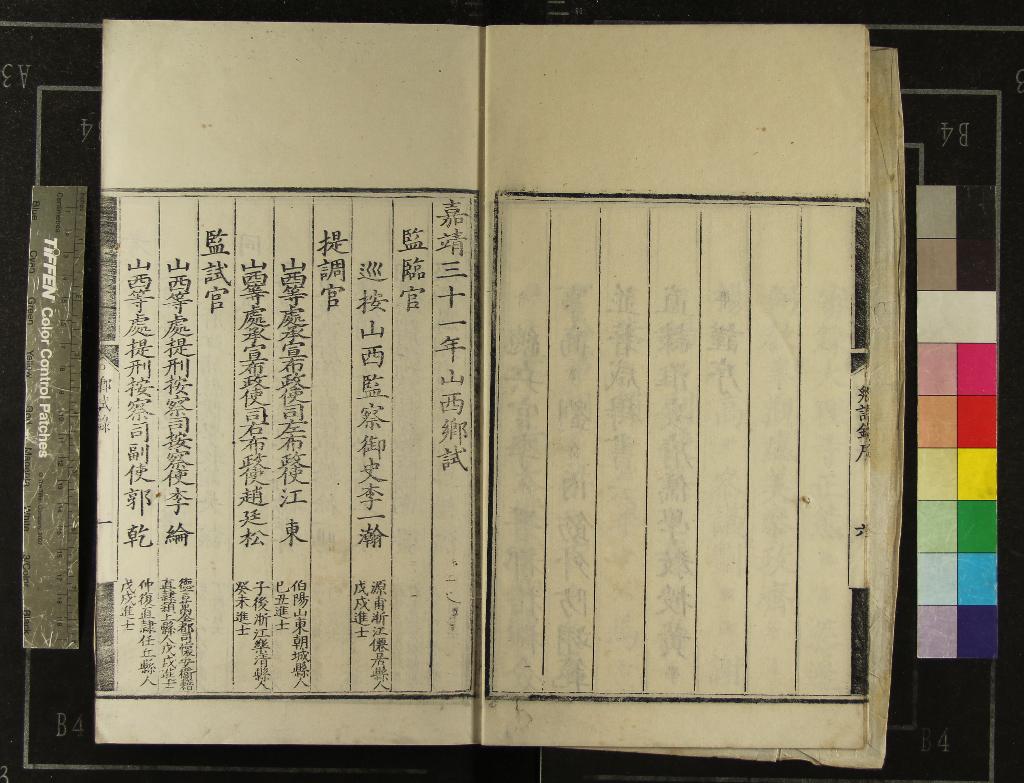 鄉試錄序
六
嘉靖三十一年山西鄉試
監臨官
巡按山西監察御史李一瀚
源甫浙江僊居縣人
戊戌進士
提調官
山西等處承宣布政使司左布政使江東
伯陽山東朝城縣人
己丑進士
山西等處承宣布政使司右布政使趙廷松
子後浙江樂清縣人
癸未進士
監試官
山西等處提刑按察司按察使李綸
直隸潁上縣人戊戌進士
山西等處提刑按察司副使郭乾
仲復直隸任丘縣人
戊戌進士
鄉試錄
一
TIFFEN Color Control Patches
A3
B4
B4
B4
B4